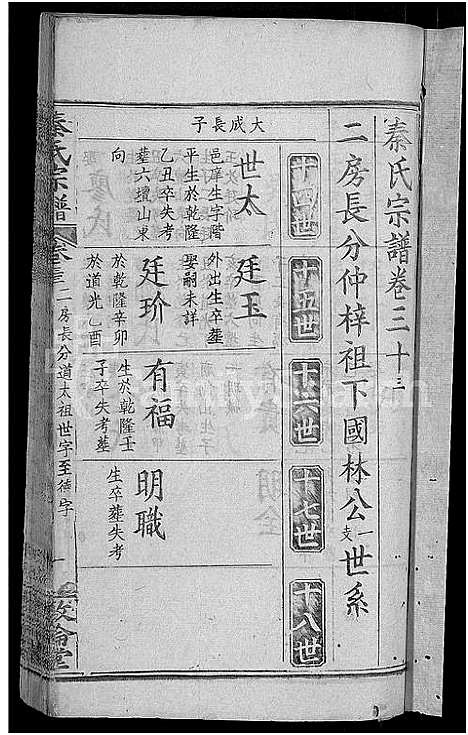 秦氏宗譜卷三十三
二房長分仲梓祖下國林公一支世系
十四世
十五世
十六世
十七世
十八世
大成長子
世太
邑庠生字階
平生於乾隆
乙丑卒失考
葬六壇山東
向
廷玉
外出生卒葬
娶嗣未詳
廷玠
於乾隆辛卯
於道光乙酉
有福
生於乾隆壬
子卒失考葬
明職
生卒葬失考
秦氏宗譜
卷三十三
二房長分道太祖世字至德字
一
敦倫堂